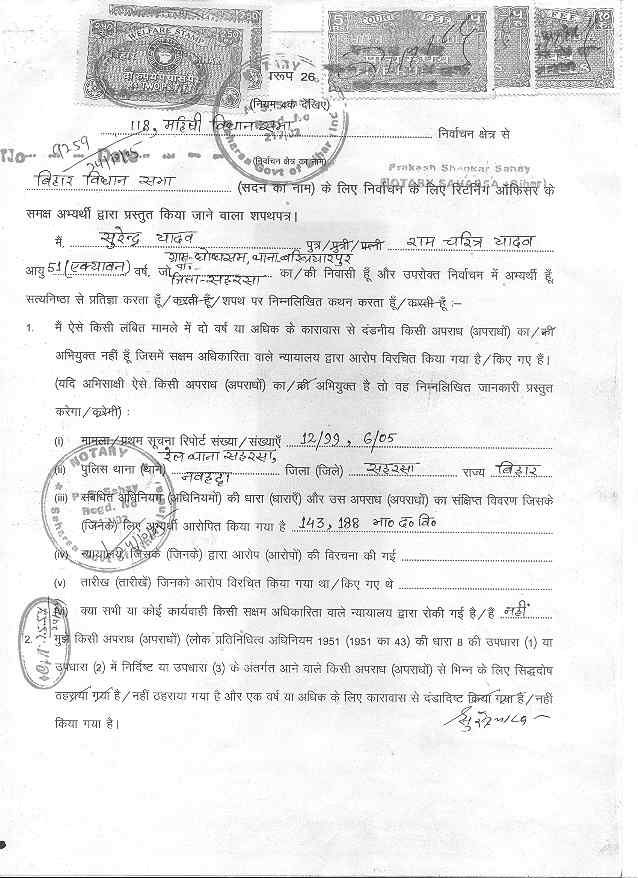 WELFARE STAMP
COURT FEE
FEE
प्ररूप 26
(नियम 4क देखिए)
118, महिषी विधान सभा निर्वाचन क्षेत्र से
(निर्वाचन क्षेत्र का नाम)
9259
No Date
Prakash Shankar Sanay
NOTARY SAHARSA (Bihar)
बिहार विधान सभा (सदन का नाम) के लिए निर्वाचन के लिए रिटर्निंग ऑफिसर के
समक्ष अभ्यर्थी द्वारा प्रस्तुत किया जाने वाला शपथपत्र।
मैं, सुरेन्द्र यादव पुत्र/पुत्री/पत्नी राम चरित्र यादव
ग्राम- थाना-
आयु 51 (एक्यावन) वर्ष, जो जिला-सहरसा का/की निवासी हूँ और उपरोक्त निर्वाचन में अभ्यर्थी हूँ,
सत्यनिष्ठा से प्रतिज्ञा करता हूँ/करती हूँ/शपथ पर निम्नलिखित कथन करता हूँ/करती हूँ :–
1. मैं ऐसे किसी लंबित मामले में दो वर्ष या अधिक के कारावास से दंडनीय किसी अपराध (अपराधों) का/की
अभियुक्त नहीं हूँ जिसमें सक्षम अधिकारिता वाले न्यायालय द्वारा आरोप विरचित किया गया है/किए गए हैं।
(यदि अभिसाक्षी ऐसे किसी अपराध (अपराधों) का/की अभियुक्त है तो वह निम्नलिखित जानकारी प्रस्तुत
करेगा/करेगी) :
(i) मामला/प्रथम सूचना रिपोर्ट संख्या/संख्याएँ 12/99, 6/05
रेल थाना सहरसा,
(ii) पुलिस थाना (थाने) नवहट्टा जिला (जिले) सहरसा राज्य बिहार
(iii) संबंधित अधिनियम (अधिनियमों) की धारा (धाराएँ) और उस अपराध (अपराधों) का संक्षिप्त विवरण जिसके
(जिनके) लिए अभ्यर्थी आरोपित किया गया है 143, 188 भा० द० वि०
(iv) न्यायालय, जिसके (जिनके) द्वारा आरोप (आरोपों) की विरचना की गई
(v) तारीख (तारीखें) जिनको आरोप विरचित किया गया था/किए गए थे
(vi) क्या सभी या कोई कार्यवाही किसी सक्षम अधिकारिता वाले न्यायालय द्वारा रोकी गई है/हैं नहीं
2. मुझे किसी अपराध (अपराधों) (लोक प्रतिनिधित्व अधिनियम 1951 (1951 का 43) की धारा 8 की उपधारा (1) या
उपधारा (2) में निर्दिष्ट या उपधारा (3) के अंतर्गत आने वाले किसी अपराध (अपराधों) से भिन्न के लिए सिद्धदोष
ठहराया गया है/नहीं ठहराया गया है और एक वर्ष या अधिक के लिए कारावास से दंडादिष्ट किया गया है/नहीं
किया गया है।